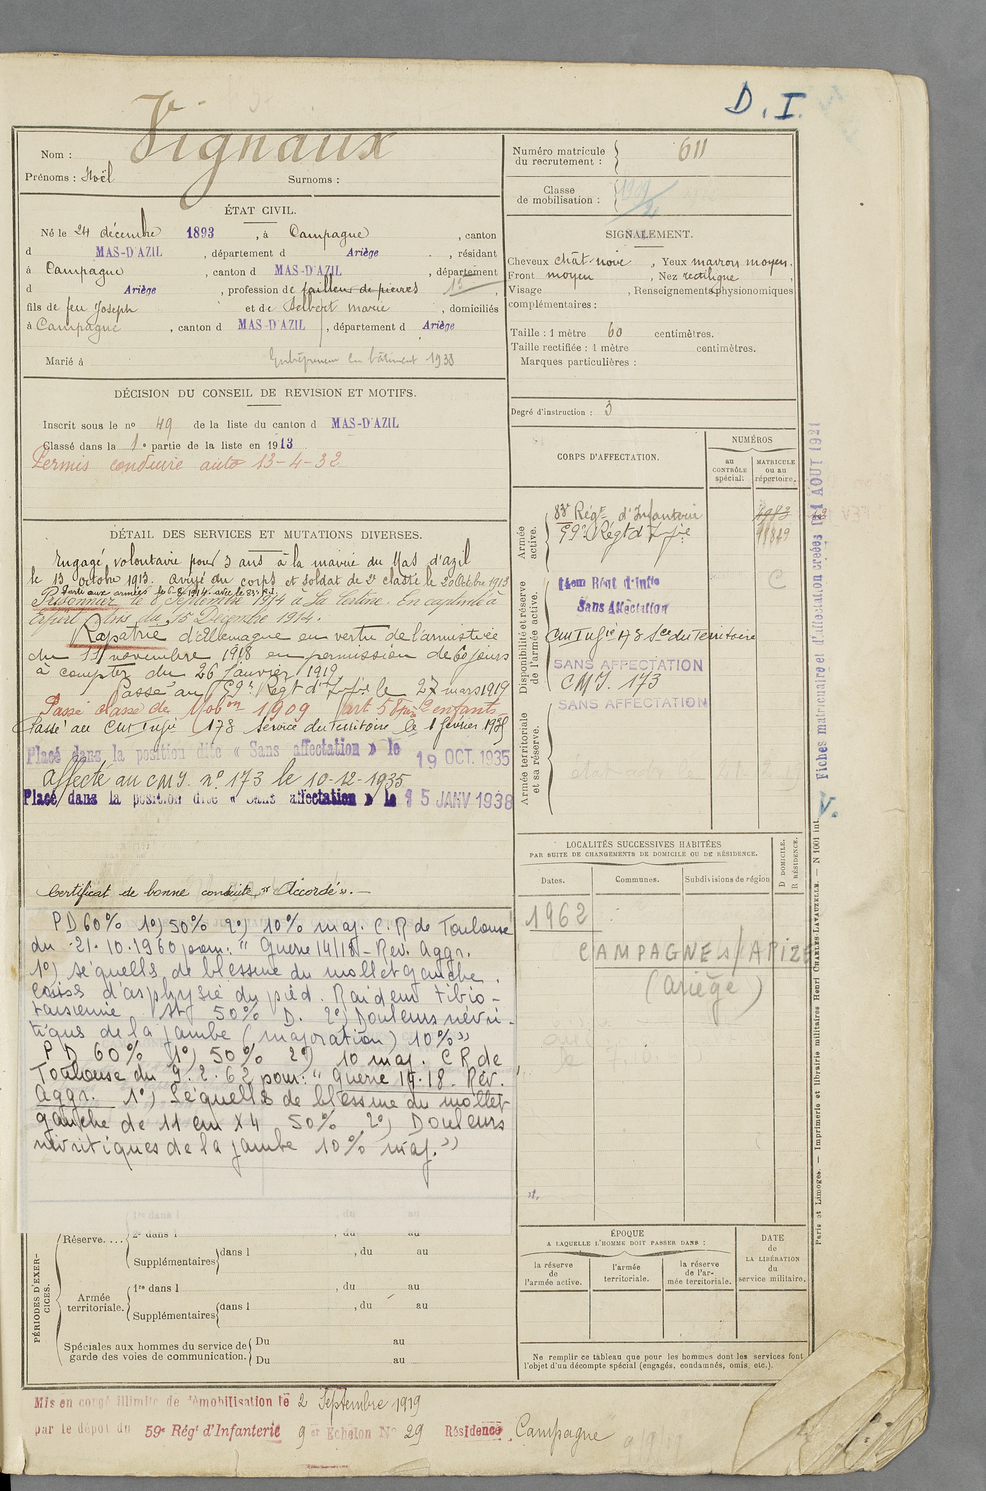 D. I.
Vignaux
Nom :
Prénoms : Noël Surnoms :
Numéro matricule du recrutement : 611
Classe de mobilisation : 1909
ÉTAT CIVIL.
Né le 24 décembre 1893, à Campagne, canton
d MAS-D'AZIL, département d Ariège, résidant
à Campagne, canton d MAS-D'AZIL, département
d Ariège, profession de tailleur de pierres
fils de feu Joseph et de Delbert marie, domiciliés
à Campagne, canton d MAS-D'AZIL, département d Ariège
Marié à Entrepreneur en bâtiment 1938
SIGNALEMENT.
Cheveux chât-noir, Yeux marron moyen.
Front moyen, Nez rectiligne
Visage , Renseignements physionomiques
complémentaires :
Taille : 1 mètre 60 centimètres.
Taille rectifiée : 1 mètre centimètres.
Marques particulières :
Degré d'instruction : 3
DÉCISION DU CONSEIL DE REVISION ET MOTIFS.
Inscrit sous le no 49 de la liste du canton d MAS-D'AZIL
Classé dans la 1e partie de la liste en 1913
Permis conduire auto 13-4-32
DÉTAIL DES SERVICES ET MUTATIONS DIVERSES.
Engagé volontaire pour 3 ans à la mairie du Mas d'azil
le 13 octobre 1913. arrivé du corps et soldat de 2e classe le 20 Octobre 1913
Parti aux armées le 6-8-1914 avec le 83e R.I.
Prisonnier le 8 Septembre 1914 à La Certine. En captivité à
Erfurt Avis du 15 Décembre 1914.
Rapatrié d'Allemagne en vertu de l'armistice
du 11 novembre 1918 en permission de 60 jours
à compter du 26 Janvier 1919
Passé au 59e Régt d'Infie le 27 mars 1919
Passé classe de Mobon 1909 (art. 58 2 enfants
Passé au CM Infie 173 service du Territoire le 1 février 1928
Placé dans la position dite « Sans affectation » le 19 OCT. 1935
Affecté au C M I. no 173 le 10-12-1935
Placé dans la position dite « Sans affectation » le 15 JANV 1938
Certificat de bonne conduite "Accordé". —
PD 60% 1o) 50% 2o) 10% maj. C.R de Toulouse
du 21.10.1960 pour: "Guerre 14/18 - Rev. Aggr.
1o) séquelles de blessure du mollet gauche.
crises d'asphysie du pied. Raideur tibio-
tarsienne 50% D. 2o) Douleurs névri-
tiques de la jambe (majoration) 10%"
PD 60% 1o) 50% 2o) 10 maj. C R de
Toulouse du 9.2.62 pour: "Guerre 14.18 - Rev.
Aggr. 1o) Séquelles de blessure du mollet
gauche de 11 cm x 4 50% 2o) Douleurs
névritiques de la jambe 10% maj."
CORPS D'AFFECTATION.
NUMÉROS
au CONTRÔLE spécial.
MATRICULE ou au répertoire.
Armée active.
83e Régt d'Infanterie 4983
59e Régt d'Infie
Disponibilité et réserve de l'armée active.
14em Régt d'Inftie C
Sans Affectation
CM Infie 173 Sce du Territoire
SANS AFFECTATION
C M I. 173
SANS AFFECTATION
Armée territoriale et sa réserve.
Fiches matriculaire et d'affectation créées le 1 AOUT 1921
V.
LOCALITÉS SUCCESSIVES HABITÉES
PAR SUITE DE CHANGEMENTS DE DOMICILE OU DE RÉSIDENCE.
Dates. Communes. Subdivisions de région
D DOMICILE.
R RÉSIDENCE.
1962
CAMPAGNE s/ARIZE
(Ariège)
Paris et Limoges. — Imprimerie et librairie militaires Henri CHARLES-LAVAUZELLE. — N 1001 int.
PÉRIODES D'EXERCICES.
Réserve....
1re dans l , du au
2e dans l , du au
Supplémentaires dans l , du au
Armée territoriale.
1re dans l , du au
Supplémentaires dans l , du au
Spéciales aux hommes du service de garde des voies de communication.
Du au
Du au
ÉPOQUE
A LAQUELLE L'HOMME DOIT PASSER DANS :
la réserve de l'armée active.
l'armée territoriale.
la réserve de l'armée territoriale.
DATE
de
LA LIBÉRATION
du
service militaire.
Ne remplir ce tableau que pour les hommes dont les services font
l'objet d'un décompte spécial (engagés, condamnés, omis, etc.).
Mis en congé illimité de démobilisation le 2 Septembre 1919
par le dépôt du 59e Régt d'Infanterie 9 er Echelon No 29 Résidence Campagne